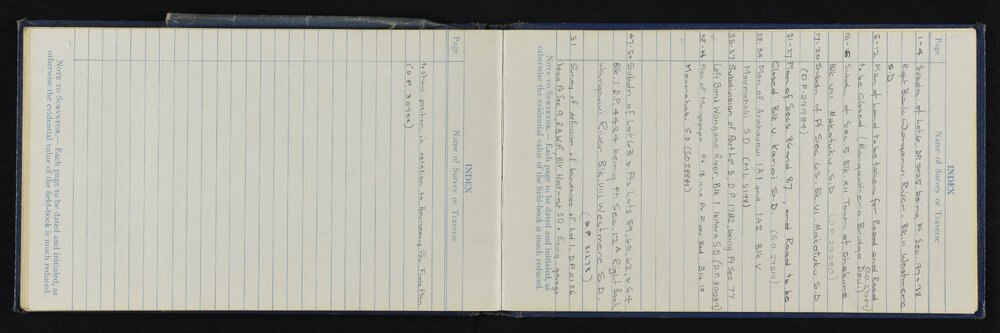 INDEX
Page Name of Survey or Traverse
1-4 Subdn of Lot 6 DP 2025 being Pt Sec. 37-38
Right Bank Wanganui River, Blk III Westmere
S.D
5-12 Plan of Land to be taken for Road and Road (S.O. 27067)
to be Closed (Mangawhero Bridge Devn.)
13-16 Subdn of Sec 5 Blk XII Town of Ohakune
Blk VIII Makotuku S.D. (D.P. 29280)
17-20 Subdn of Pt Sec. 63 Blk VI Makotuku S.D
(D.P. 29984)
21-27 Plan of Secs 86 and 87, and Road to be
Closed Blk V. Karioi S.D. (S.O. 27514)
28-34 Plan of Arahaunui 1A1 and 1A2 Blk V
Moumahaki S.D (M.L. 5198)
35-37 Subdivision of Part Lot 5 D.P 1782, being Pt Sec 77
Left Bank Wanganui River Blk I Ikitara S.D (D.P. 30089)
38-46 Plan of Pt 13 and Pt River Bed, Blk IX
Moumahaki S.D (SO 28841)
47-50 Subdn of Lot 63 & Pts Lots 59, 60, 62, & 64
Blk. I D.P. 4484 being Pt Sec. 12A Right Bank
Wanganui River Blk VIII Westmere S.D.
(D.P. 31273)
51 Survey of definition of boundaries of Lot 1, D.P.
being Pt Sec 9, R.B.W.R, Blk Westmere SD & fixing garage
NOTE TO SURVEYOR.—Each page to be dated and initialed, as
otherwise the evidential value of the field-book is much reduced.
INDEX
Page Name of Survey or Traverse
to show position in relation to Boundary for Fixity Plan
(D.P. 30984)
NOTE TO SURVEYOR.—Each page to be dated and initialed, as
otherwise the evidential value of the field-book is much reduced.